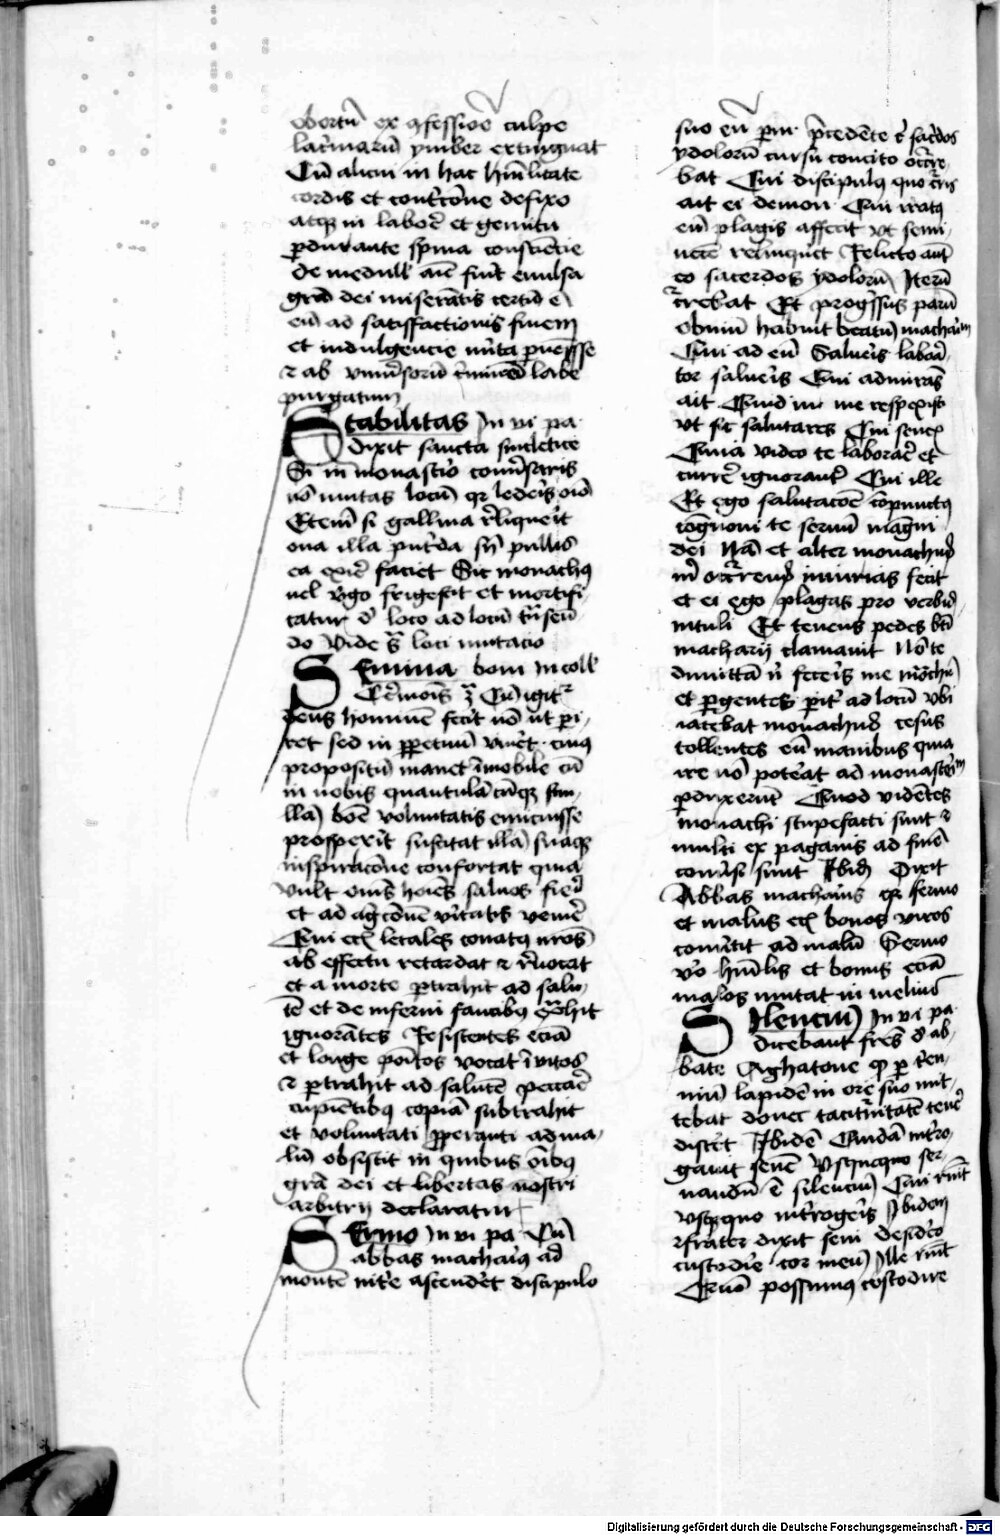 obortu ex confessione culpe
lacrimaru ymber extinguat
Cu alicui in hac humilitate
cordis et contricione defixo
atque in labore et gemitu
perdurante spina consciencie
de medull anime fuit euulsa
gracia dei miserantis certum est
eu ad satisfactionis finem
et indulgencie
et ab labe
purgatum
Stabilitas In vi pa
dixit sancta sincletice
Si in monasterio
no mutas locu quia lederis
Etem si gallina reliquerit
oua illa putrida sine pullis
ea exire faciet Sic monachus
vel virgo frigescit et mortifi
catur de loco ad locu transeun
do Vide supra loci mutacio
Semina boni In coll
Cu igitur
deus homine fecit no ut peri
ret sed in perpetuu viueret cuius
propositu manet imobile cu
in nobis quantula cunque scin
lla bone voluntatis emicuisse
prospexerit suscitat illa suaque
inspiracione confortat quia
vult omnes homines saluos fieri
et ad agnicione veritatis venire
Qui eciam letales conatus nostros
ab effectu retardat et reuocat
et a morte pertrahit ad salu
te et de inferni faucibus extrahit
ignorantes Resistentes ecia
et longe positos vocat inuitos
et pertrahit ad salute peccare
cupientibus copia subtrahit
et voluntati properanti ad ma
lu obsistit in quibus omnibus
gra dei et libertas nostri
arbitrij declaratur
Sermo In vi pa Cu
abbas macharius ad
monte nitrie ascenderet discipulo
suo eu precedente sacerdos
ydoloru cursu concito occurre
bat Cui discipulus quo curris
ait ei demon Qui iratus
eu plagis affecit vt semi
nece relinqueret Relicto aut
eo sacerdos ydoloru Iteru
currebat Et progressus paru
obuiu habuit beatu machariu
Qui ad eu Salueris labora
tor salueris Qui admirans
ait Quid in me respexisti
vt sic salutares Cui senex
Quia video te laborare et
currere ignoranter Cui ille
Et ego salutacoe compunctus
cognoui te seruu magni
dei Na et alter monachus
mihi occurrens iniurias fecit
et ei ego plagas pro verbis
intuli Et tenens pedes beati
macharij clamauit No te
dimitta nisi feceris me monachu
et pergentes pariter ad locu vbi
iacebat monachus cesus
tollentes eu manibus quia
ire no poterat ad monasterium
perduxerunt Quod videntes
monachi stupefacti sunt et
multi ex paganis ad fine
conuersi sunt Ibidem Dixit
Abbas macharius quia sermo
et malus eciam bonos viros
comutit ad malu Sermo
vero humilis et bonus ecia
malos mutat in melius
Silenciu In vi pa
dicebant fratres de ab
bate Aghatone quod per trien
niu lapidem in ore suo mit
tebat donec taciturnitate tenere
disceret Ibidem Quida intro
gauit sene Vsquequo ser
uandu est silenciu Cui respondit
vsquequo introgeris Ibidem
frater dixit seni desidero
custodire cor meu Ille respondit
Quomodo possumus costodire
Digitalisierung gefördert durch die Deutsche Forschungsgemeinschaft - DFG